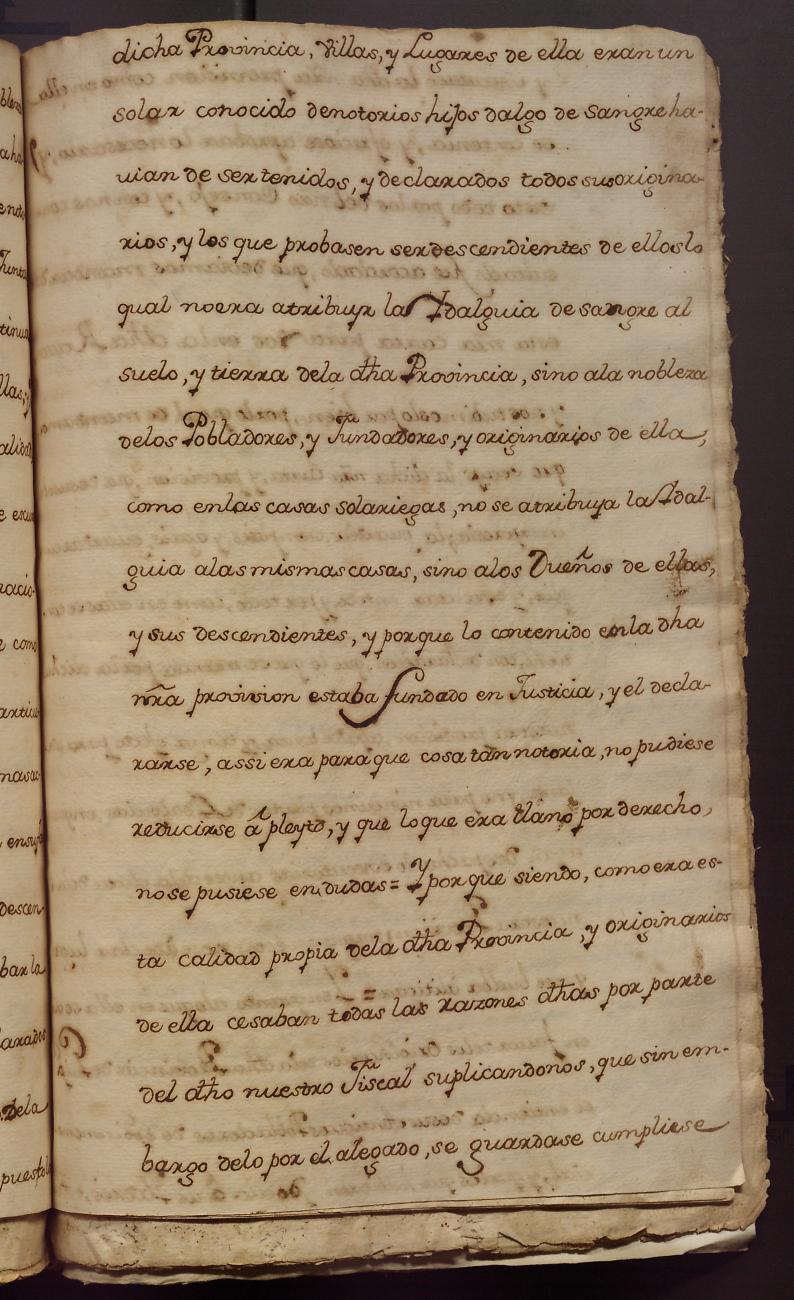 dicha Provincia, Villas, y Lugares de ella eran un
solar conocido denotorios hijos dalgo de sangre ha-
uian de ser tenidos, y declarados todos sus origina-
rios, y los que probasen ser descendientes de ellos lo
qual no era atribuyr la Idalguia de sangre al
suelo, y tierra dela dha Provincia, sino ala nobleza
delos Pobladores, y Fundadores, y originarios de ella,
como enlas casas solariegas, no se atribuya la Idal-
guia alas mismas casas, sino alos Dueños de ellas,
y sus descendientes, y porque lo contenido enla dha
nra provision estaba fundado en Justicia, y el decla-
rarse, assi era para que cosa tan notoria, no pudiese
reducirse á pleyto, y que loque era llano por derecho,
no se pusiese en dudas = Y porque siendo, como era es-
ta calidad propia dela dha Provincia, y originarios
de ella cesaban todas las razones dhas por parte
del dho nuestro Fiscal suplicandonos, que sin em-
bargo delo por el alegado, se guardase cumpliese